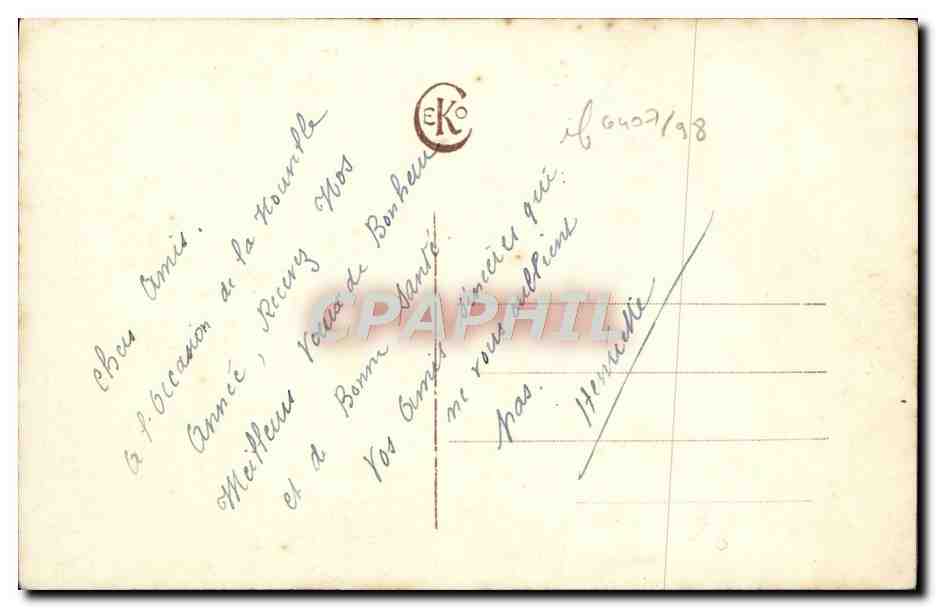 CEKO
if 6407/98
Chers Amis.
a l'Occasion de la Nouvelle
Année, Recevez Nos
Meilleurs Vœux de Bonheur
et de Bonne Santé
Vos Amis sincères qui
ne vous oublient
pas.
Henriette
CPAPHIL